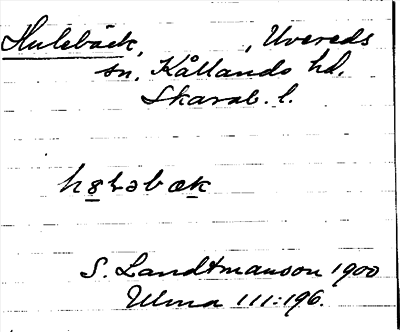 Hulebäck, , Uvereds
sn, Kållands hd,
Skarab. l.
S. Landtmanson 1900
Ulma 111:196.